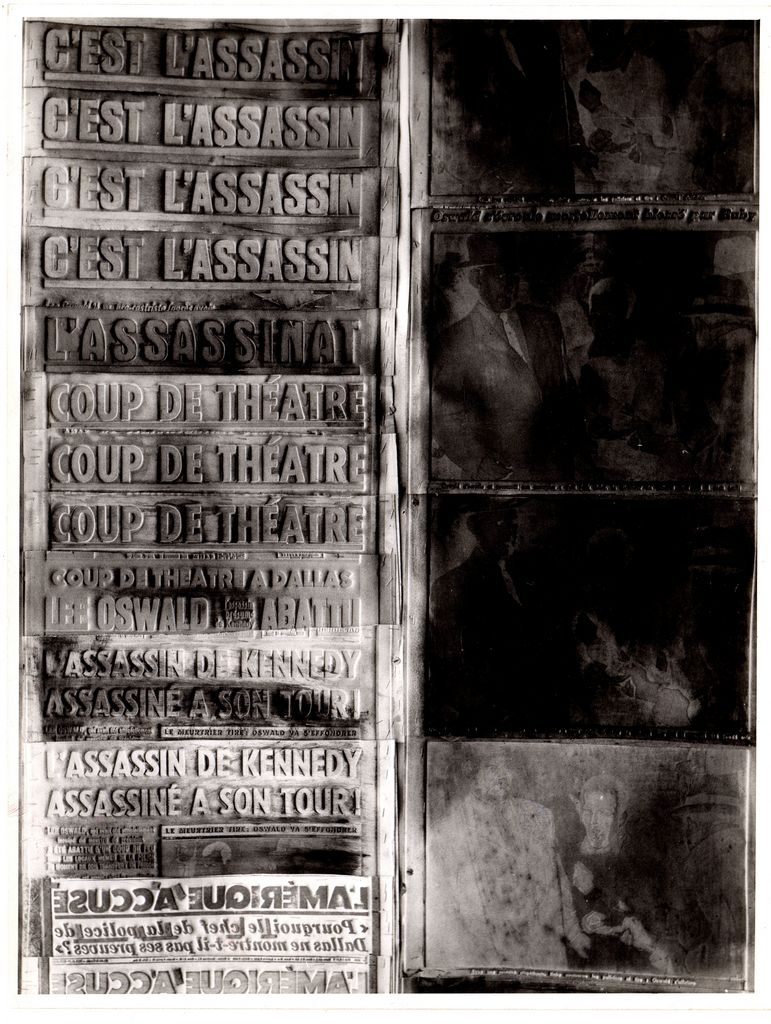 C'EST L'ASSASSIN
C'EST L'ASSASSIN
C'EST L'ASSASSIN
C'EST L'ASSASSIN
L'ASSASSINAT
COUP DE THÉATRE
COUP DE THÉATRE
COUP DE THÉATRE
COUP DE THEATRE A DALLAS
LEE OSWALD ABATTU
L'ASSASSIN DE KENNEDY
ASSASSINÉ A SON TOUR!
LE MEURTRIER TIRE: OSWALD VA S'EFFONDRER
L'ASSASSIN DE KENNEDY
ASSASSINÉ A SON TOUR!
LE MEURTRIER TIRE: OSWALD VA S'EFFONDRER
L'AMÉRIQUE ACCUSE
«Pourquoi le chef de la police de
Dallas ne montre-t-il pas ses preuves?»
L'AMÉRIQUE ACCUSE
Oswald s'écroule mortellement blessé par Ruby